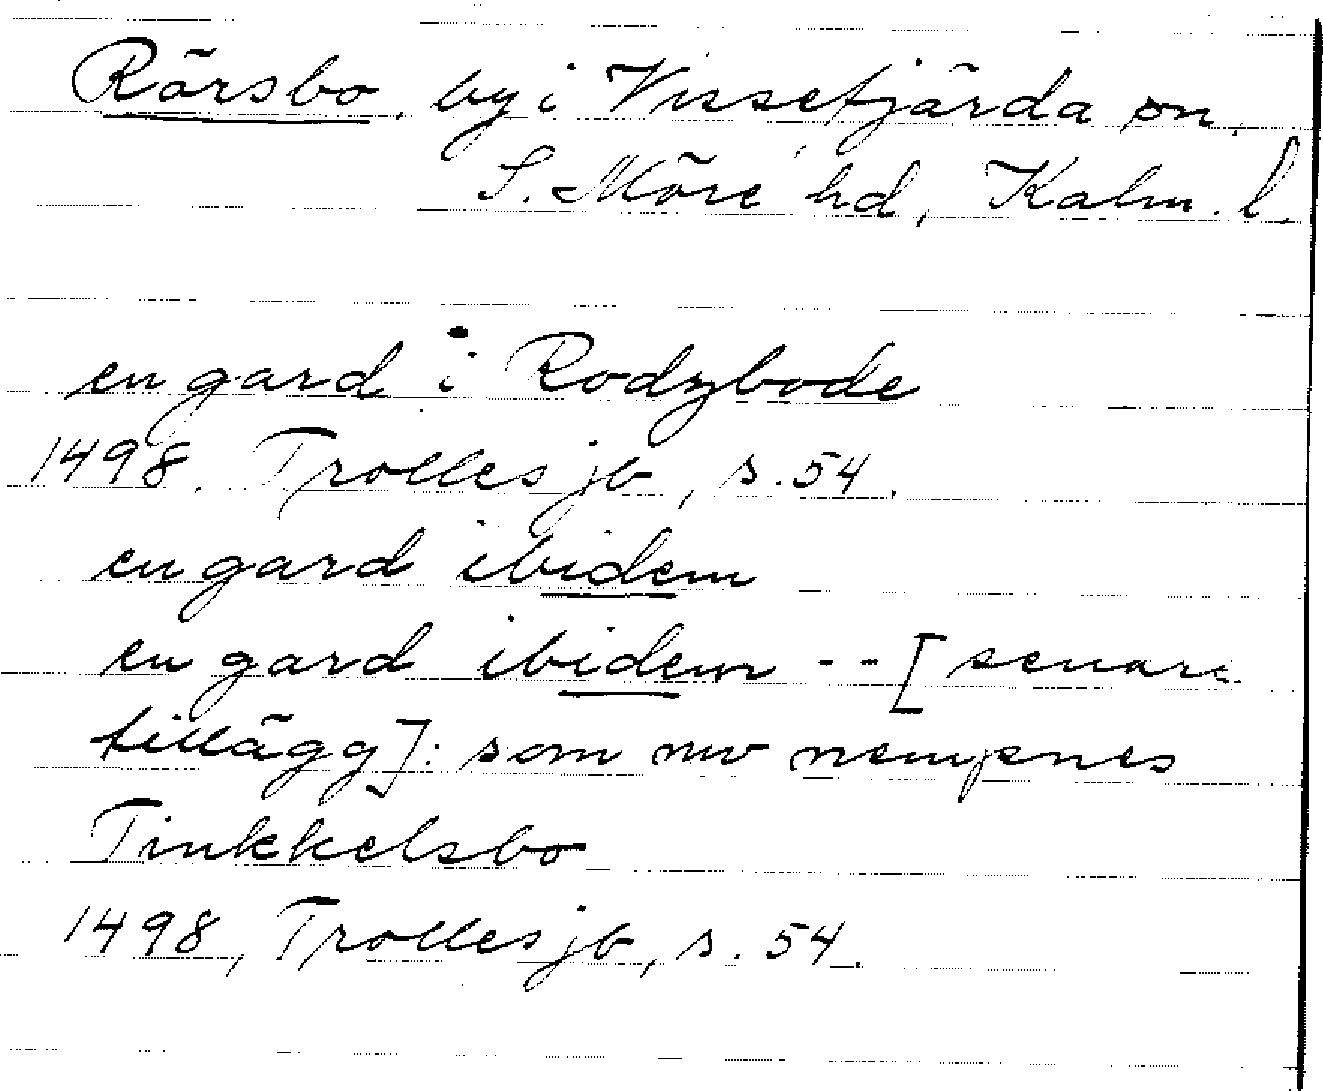 Rörsbo, by i Vissefjärda sn.
S. Möre hd, Kalm. l.
en gard i Rodzbode
1498. Trolles jb, s. 54.
en gard ibidem
en gard ibidem -- [senare
tillägg]: som nw nempnes
Tinkkelsbo
1498, Trolles jb, s. 54.